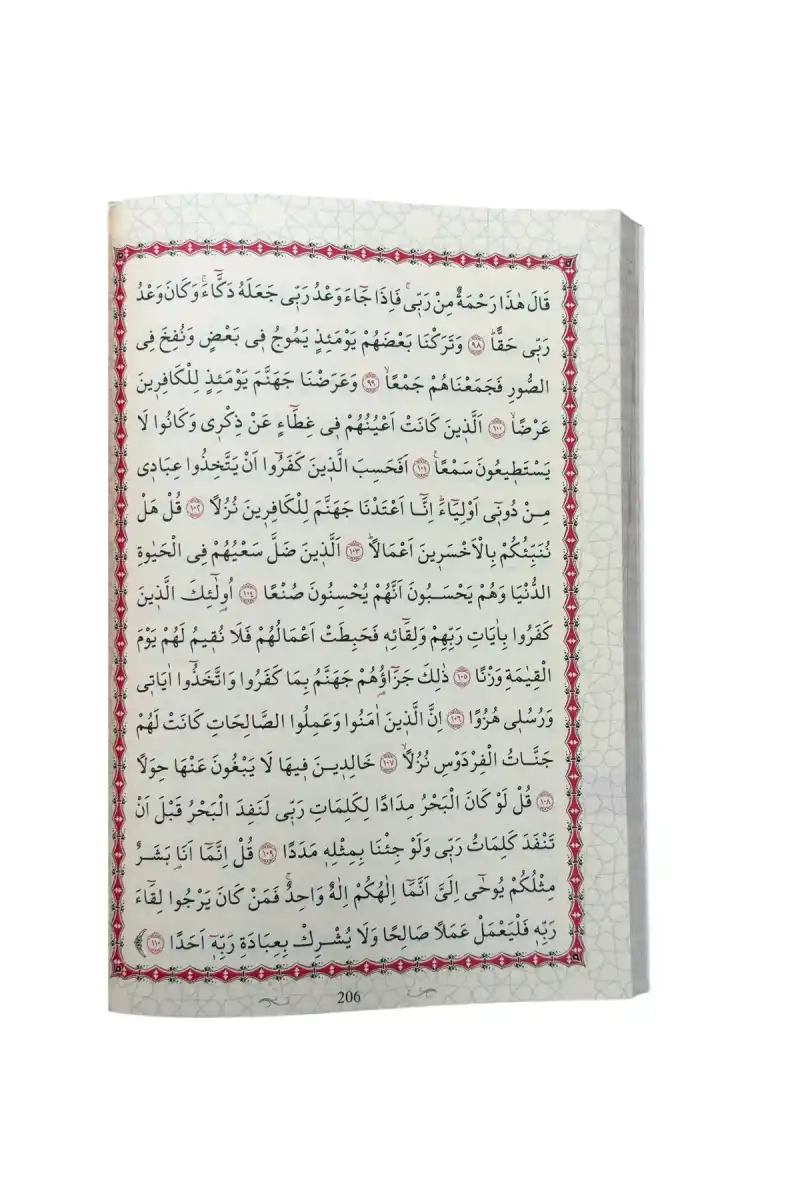 قَالَ هٰذَا رَحْمَةٌ مِنْ رَبّ۪يۚ فَاِذَا جَٓاءَ وَعْدُ رَبّ۪ي جَعَلَهُ دَكَّٓاءَۚ وَكَانَ وَعْدُ
رَبّ۪ي حَقًّاۜ ﴿٩٨﴾ وَتَرَكْنَا بَعْضَهُمْ يَوْمَئِذٍ يَمُوجُ ف۪ي بَعْضٍ وَنُفِخَ فِي
الصُّورِ فَجَمَعْنَاهُمْ جَمْعًاۙ ﴿٩٩﴾ وَعَرَضْنَا جَهَنَّمَ يَوْمَئِذٍ لِلْكَافِر۪ينَ
عَرْضًاۙ ﴿١٠٠﴾ اَلَّذ۪ينَ كَانَتْ اَعْيُنُهُمْ ف۪ي غِطَٓاءٍ عَنْ ذِكْر۪ي وَكَانُوا لَا
يَسْتَط۪يعُونَ سَمْعًاۚ ﴿١٠١﴾ اَفَحَسِبَ الَّذ۪ينَ كَفَرُٓوا اَنْ يَتَّخِذُوا عِبَاد۪ي
مِنْ دُون۪ٓي اَوْلِيَٓاءَۜ اِنَّٓا اَعْتَدْنَا جَهَنَّمَ لِلْكَافِر۪ينَ نُزُلًا ﴿١٠٢﴾ قُلْ هَلْ
نُنَبِّئُكُمْ بِالْاَخْسَر۪ينَ اَعْمَالًاۜ ﴿١٠٣﴾ اَلَّذ۪ينَ ضَلَّ سَعْيُهُمْ فِي الْحَيٰوةِ
الدُّنْيَا وَهُمْ يَحْسَبُونَ اَنَّهُمْ يُحْسِنُونَ صُنْعًا ﴿١٠٤﴾ اُو۬لٰٓئِكَ الَّذ۪ينَ
كَفَرُوا بِاٰيَاتِ رَبِّهِمْ وَلِقَٓائِه۪ فَحَبِطَتْ اَعْمَالُهُمْ فَلَا نُق۪يمُ لَهُمْ يَوْمَ
الْقِيٰمَةِ وَزْنًا ﴿١٠٥﴾ ذٰلِكَ جَزَٓاؤُ۬هُمْ جَهَنَّمُ بِمَا كَفَرُوا وَاتَّخَذُٓوا اٰيَات۪ي
وَرُسُل۪ي هُزُوًا ﴿١٠٦﴾ اِنَّ الَّذ۪ينَ اٰمَنُوا وَعَمِلُوا الصَّالِحَاتِ كَانَتْ لَهُمْ
جَنَّاتُ الْفِرْدَوْسِ نُزُلًاۙ ﴿١٠٧﴾ خَالِد۪ينَ ف۪يهَا لَا يَبْغُونَ عَنْهَا حِوَلًا
﴿١٠٨﴾ قُلْ لَوْ كَانَ الْبَحْرُ مِدَادًا لِكَلِمَاتِ رَبّ۪ي لَنَفِدَ الْبَحْرُ قَبْلَ اَنْ
تَنْفَدَ كَلِمَاتُ رَبّ۪ي وَلَوْ جِئْنَا بِمِثْلِه۪ مَدَدًا ﴿١٠٩﴾ قُلْ اِنَّمَٓا اَنَا۬ بَشَرٌ
مِثْلُكُمْ يُوحٰٓى اِلَيَّ اَنَّمَٓا اِلٰهُكُمْ اِلٰهٌ وَاحِدٌۚ فَمَنْ كَانَ يَرْجُوا لِقَٓاءَ
رَبِّه۪ فَلْيَعْمَلْ عَمَلًا صَالِحًا وَلَا يُشْرِكْ بِعِبَادَةِ رَبِّه۪ٓ اَحَدًا ﴿١١٠﴾
206